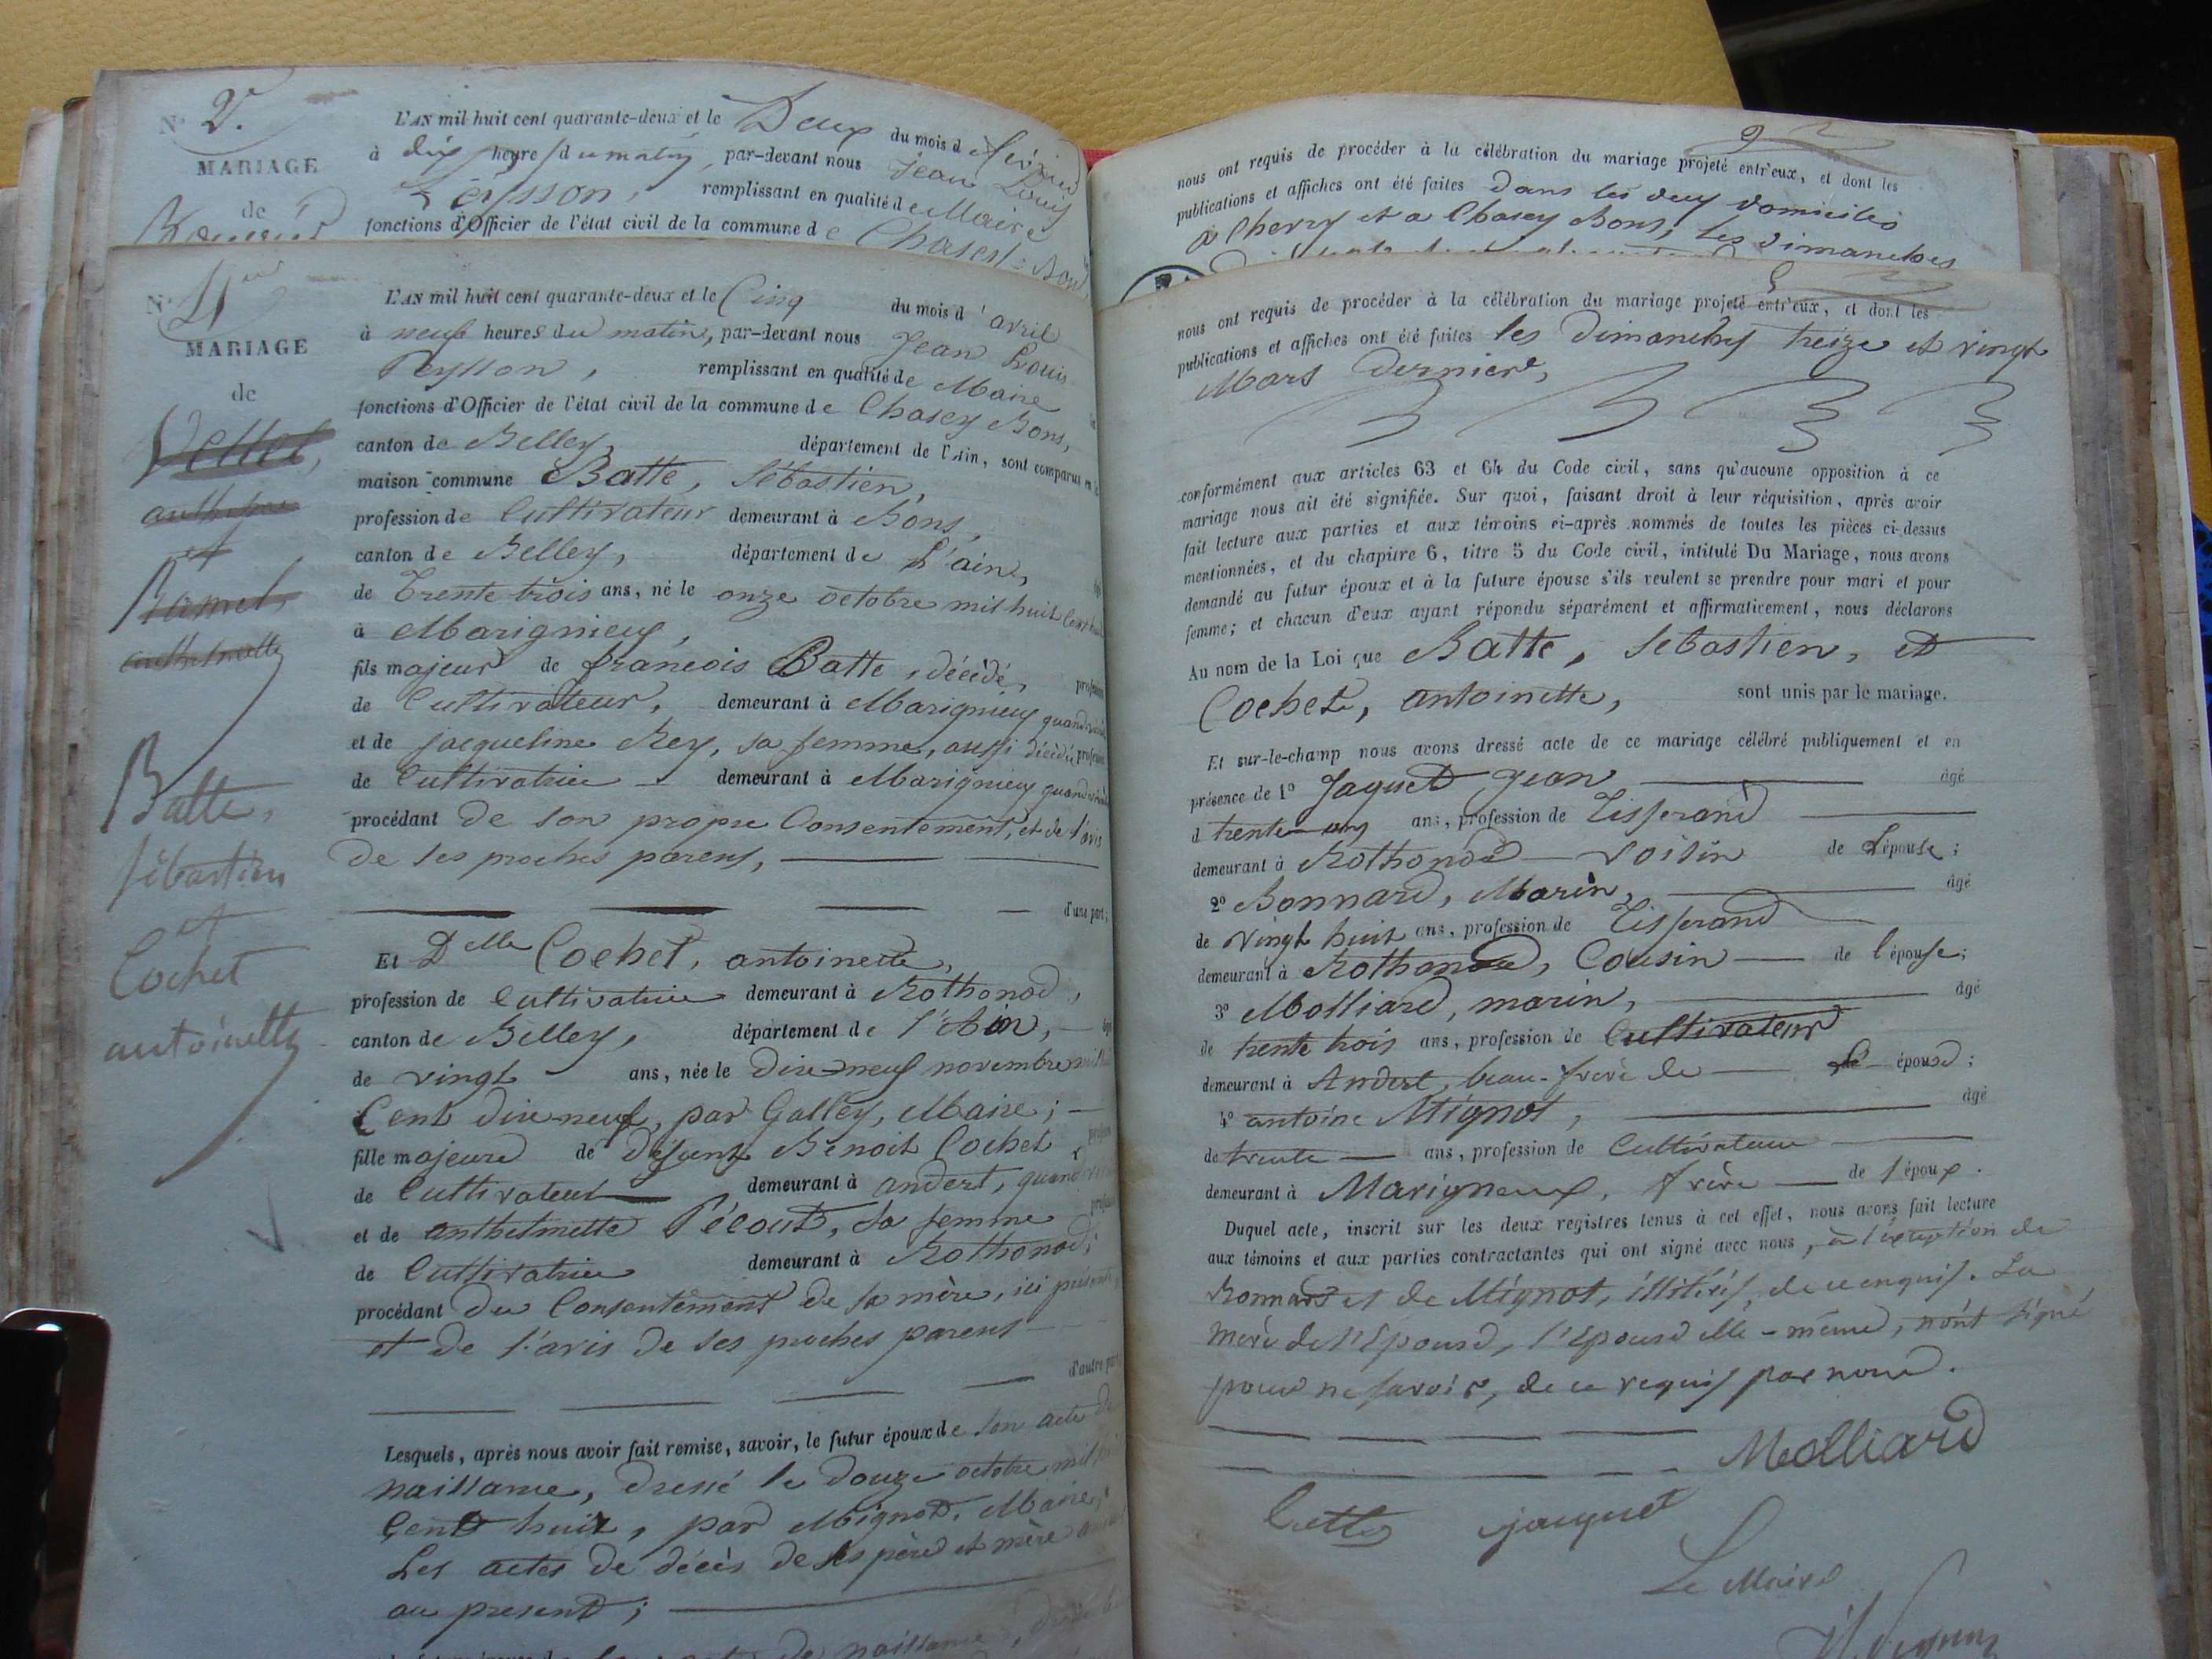 N° 2.
MARIAGE
de
L'AN mil huit cent quarante-deux et le Deux du mois d
à dix heures du matin, par-devant nous Jean Louis
Peysson, remplissant en qualité de Maire
fonctions d'Officier de l'état civil de la commune de Chasey-Bons
N°
MARIAGE
de
Vettet,
anthelme
et
anthelmette
Batte,
Sébastien
et
Cochet
antoinette
L'AN mil huit cent quarante-deux et le Cinq du mois d'avril
à neuf heures du matin, par-devant nous Jean Louis
Peysson, remplissant en qualité de Maire
fonctions d'Officier de l'état civil de la commune de Chasey Bons,
canton de Belley, département de l'Ain, sont comparus en la
maison commune Batte, Sébastien,
profession de Cultivateur demeurant à Bons,
canton de Belley, département de L'ain,
de Trente trois ans, né le onze octobre mil huit Cent huit
à Marignieu,
fils majeur de francois Batte, décédé,
de Cultivateur, demeurant à Marignieu quand vivait
et de jacqueline Rey, sa femme, aussi décédée
de Cultivatrice demeurant à Marignieu quand vivait
procédant de son propre Consentement, et de l'avis
de ses proches parens,
d'une part;
Et Delle Cochet, antoinette,
profession de Cultivatrice demeurant à Rothonod,
canton de Belley, département de l'Ain,
de vingt ans, née le dix-neuf novembre mil huit
Cent dix-neuf, par Galley, Maire;
fille majeure de défunt Benoit Cochet
de Cultivateur demeurant à andert, quand
et de anthelmette Pécout, sa femme
de Cultivatrice demeurant à Rothonod;
procédant du Consentement de sa mère, ici présente
et de l'avis de ses proches parens
d'autre part;
Lesquels, après nous avoir fait remise, savoir, le futur époux de son acte de
naissance, dressé le douze octobre mil
Cent huit, par Mignot, Maire,
Les actes de décès de ses père et mère
au présent;
de naissance,
nous ont requis de procéder à la célébration du mariage projeté entr'eux, et dont les
publications et affiches ont été faites dans les deux domiciles
à Cherry et a Chasey Bons, les dimanches
nous ont requis de procéder à la célébration du mariage projeté entr'eux, et dont les
publications et affiches ont été faites les dimanches treize et vingt
Mars dernier,
conformément aux articles 63 et 64 du Code civil, sans qu'aucune opposition à ce
mariage nous ait été signifiée. Sur quoi, faisant droit à leur réquisition, après avoir
fait lecture aux parties et aux témoins ci-après nommés de toutes les pièces ci-dessus
mentionnées, et du chapitre 6, titre 5 du Code civil, intitulé Du Mariage, nous avons
demandé au futur époux et à la future épouse s'ils veulent se prendre pour mari et pour
femme; et chacun d'eux ayant répondu séparément et affirmativement, nous déclarons
Au nom de la Loi que Batte, Sebastien, et
Cochet, antoinette, sont unis par le mariage.
Et sur-le-champ nous avons dressé acte de ce mariage célébré publiquement et en
présence de 1° Jaquet Jean âgé
d trente ans, profession de Tisserand
demeurant à Rothonod voisin de l'épouse;
2° Bonnard, Marin, âgé
de vingt huit ans, profession de Tisserand
demeurant à Rothonod, Cousin de l'épouse;
3° Molliard, marin, âgé
de trente trois ans, profession de Cultivateur
demeurant à Andert, beau-frère de l' épouse;
4° antoine Mignot, âgé
de trente ans, profession de Cultivateur
demeurant à Marignieux, frère de l'époux.
Duquel acte, inscrit sur les deux registres tenus à cet effet, nous avons fait lecture
aux témoins et aux parties contractantes qui ont signé avec nous, à l'exeption de
Bonnard et de Mignot, illitérés, de ce enquis. La
mère de l'Epouse, l'Epouse elle-même, n'ont signé
pour ne savoir, de ce requis par nous.
Molliard
batte jaquet
Le Maire